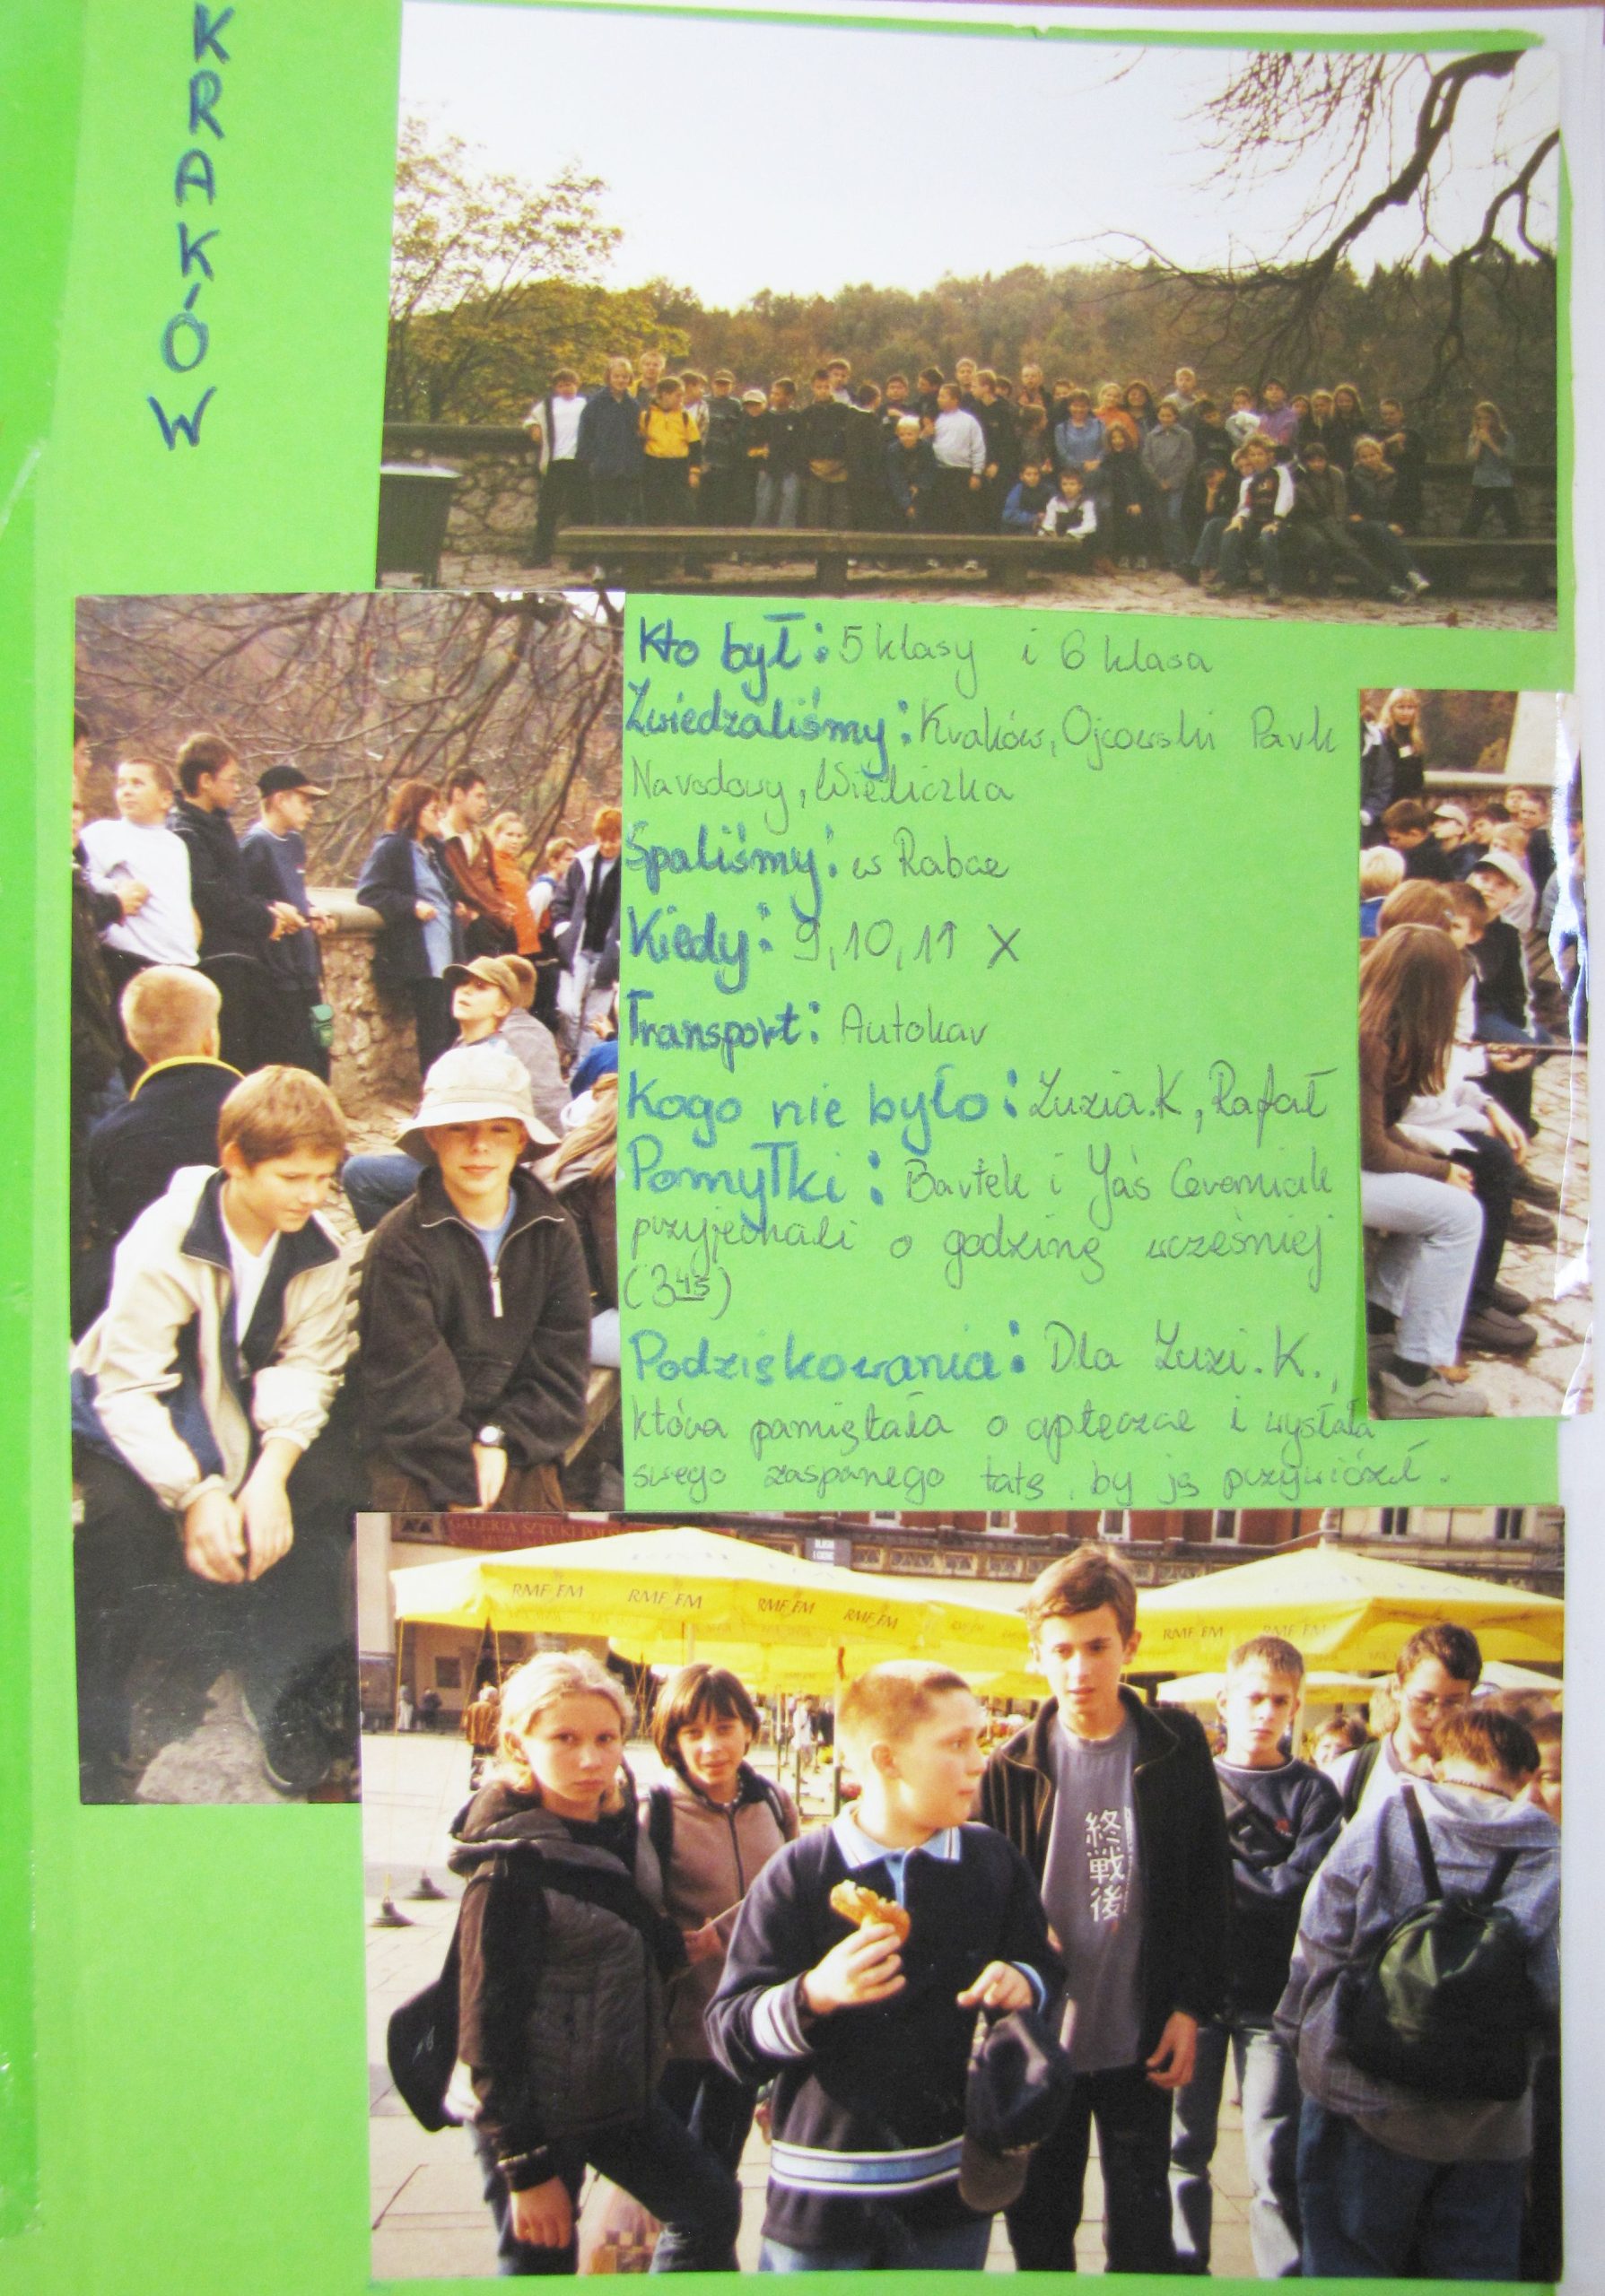 KRAKÓW
Kto był: 5 klasy i 6 klasa
Zwiedzaliśmy: Kraków, Ojcowski Park
Narodowy, Wieliczka
Spaliśmy: w Rabce
Kiedy: 9, 10, 11 X
Transport: Autokar
Kogo nie było: Zuzia.K, Rafał
Pomyłki: Bartek i Jaś
przyjechali o godzinę wcześniej
(3 45)
Podziękowania: Dla Zuzi.K.,
która pamiętała o apteczce i wysłała
swego zaspanego tatę, by ją przywiózł.
GALERIA SZTUKI
RMF FM RMF FM RMF FM RMF FM RMF FM RMF FM
終戦後